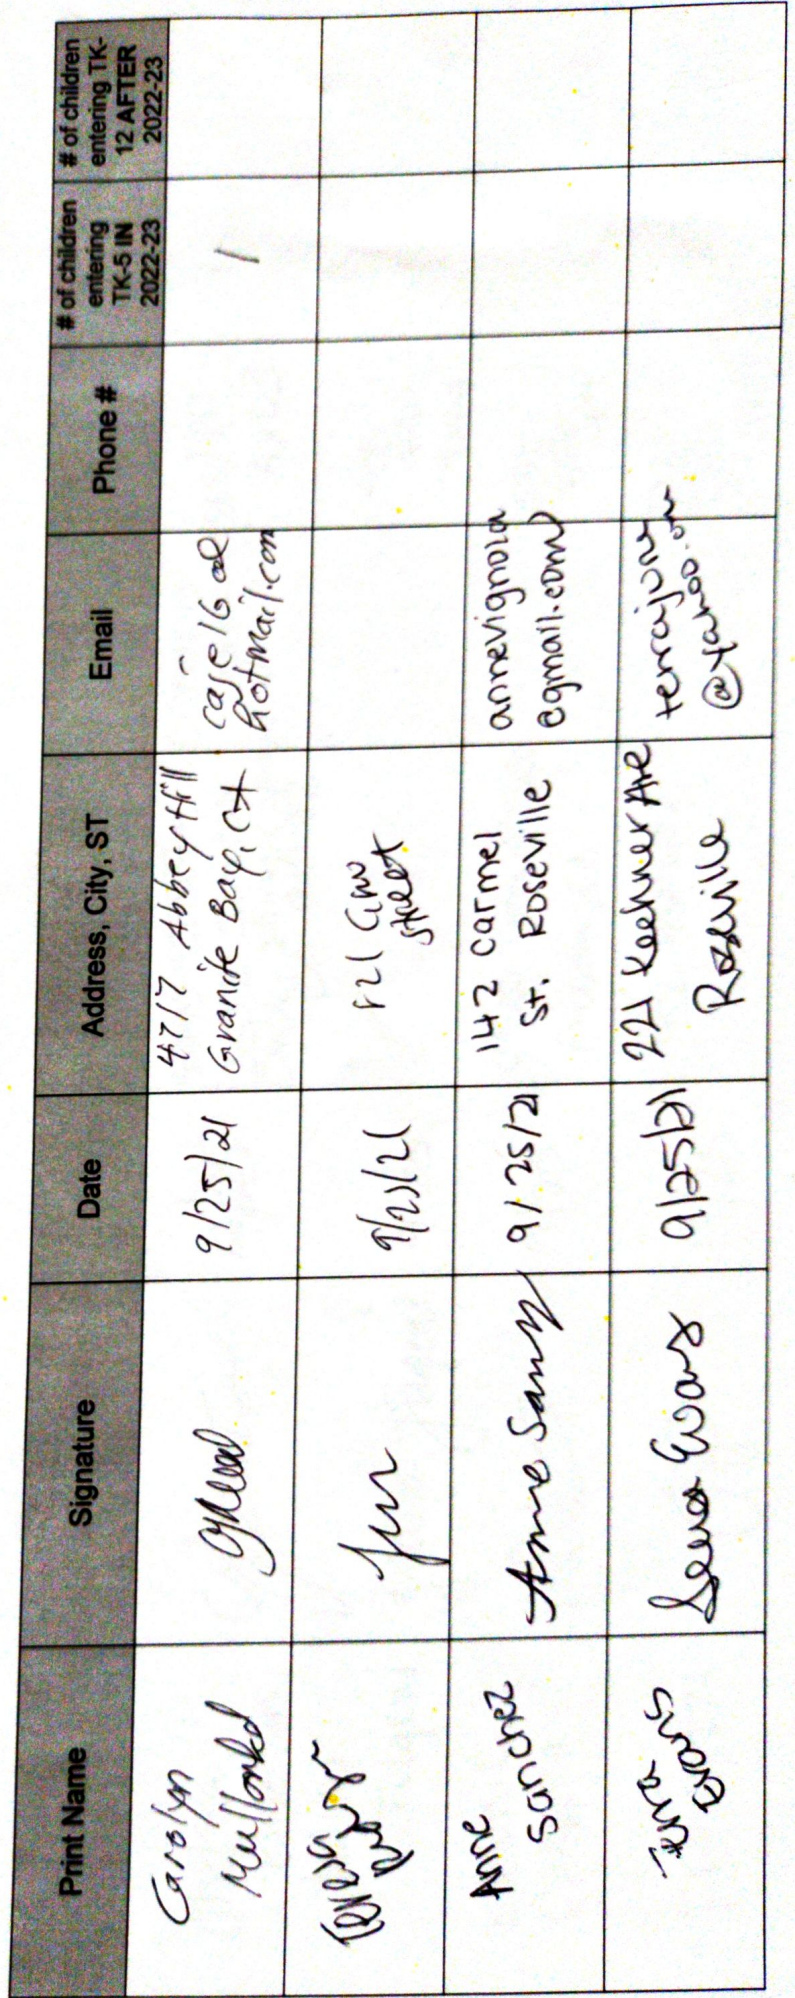 Print Name
Signature
Date
Address, City, ST
Email
Phone #
# of children
entering
TK-5 IN
2022-23
# of children
entering TK-
12 AFTER
2022-23
Carolyn
9/25/21
4717 Abbey Hill
Granite Bay, CA
hotmail.com
1
Teresa
street
Anne
Sanchez
Anne Sanz
9/25/21
142 Carmel
St. Roseville
annevignola
@gmail.com
Terra
Evans
Evans
9/25/21
221 Keehner Ave
Roseville
@yahoo.com